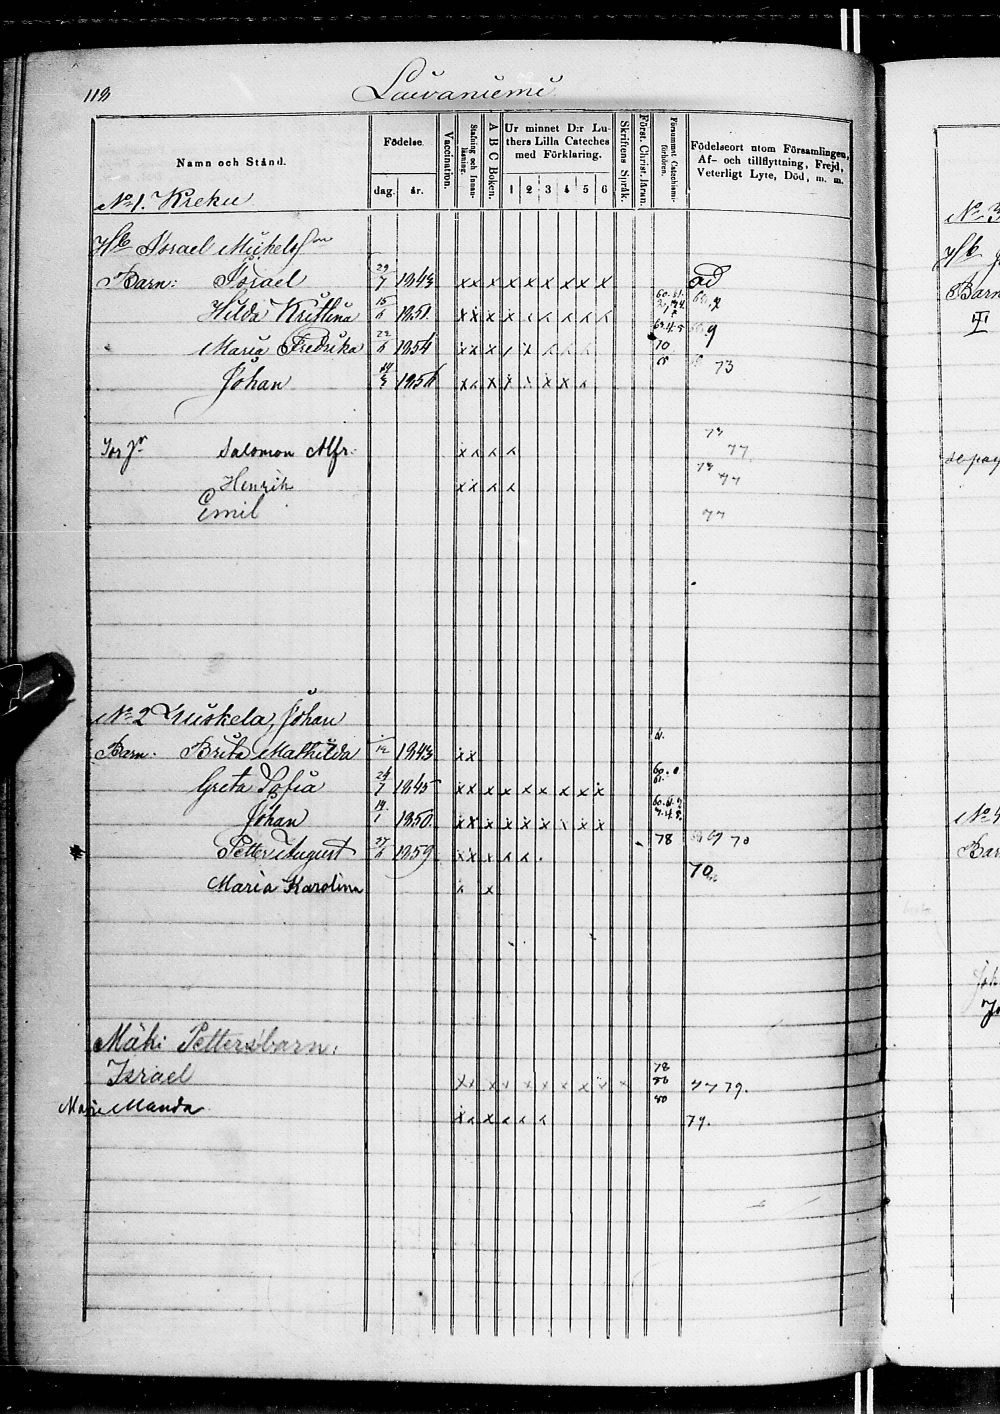 118 Laivaniemi
Namn och Stånd. Födelse. dag. år. Vaccination. Stafning och Innanläsning. A B C Boken. Ur minnet D:r Luthers Lilla Cateches med Förklaring. 1 2 3 4 5 6 Skriftens Språk. Först. Christ. läran. Försummat Catechismiförhören. Födelseort utom Församlingen, Af- och tillflyttning, Frejd, Veterligt Lyte, Död, m. m.
No 1. Kreku
Hb Israel Mickelsson
Barn: Israel 29/7 1843 x x x x x x x x x
Hilda Kristina 15/6 1851 x x x x x x x x x
Maria Fredrika 22/6 1854 x x x x x x x x 70 9
Johan 1856 x x x x x x x x 73
73
Salomon Alfr. x x x x 77
Henrik x x x x 77
Emil 77
No 2 Kuiskela, Johan
Barn. Brita Mathilda 1843 x x
Greta Sofia 24/7 1845 x x x x x x x x x
Johan 19/1 1850 x x x x x x x x x
Petter August 27/6 1859 x x x x x 78 69 70
Maria Karolina x x 70
Mäki Pettersbarn:
78
Israel x x x x x x x x x x 77 79.
80
Manda x x x x x x 79.
No 3
Hb
Barn
No 4
Bar